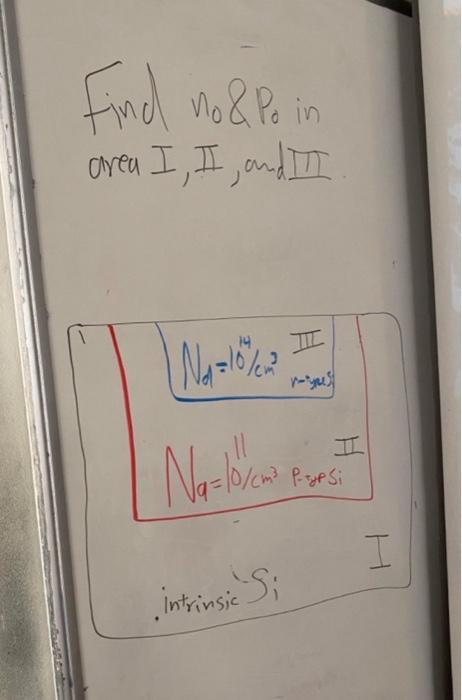 Find no & Po in
area I, II, and III.
Nd=10^14/cm^3 III
n-type Si
II
Na=10^11/cm^3 P-typ Si
I
intrinsic Si